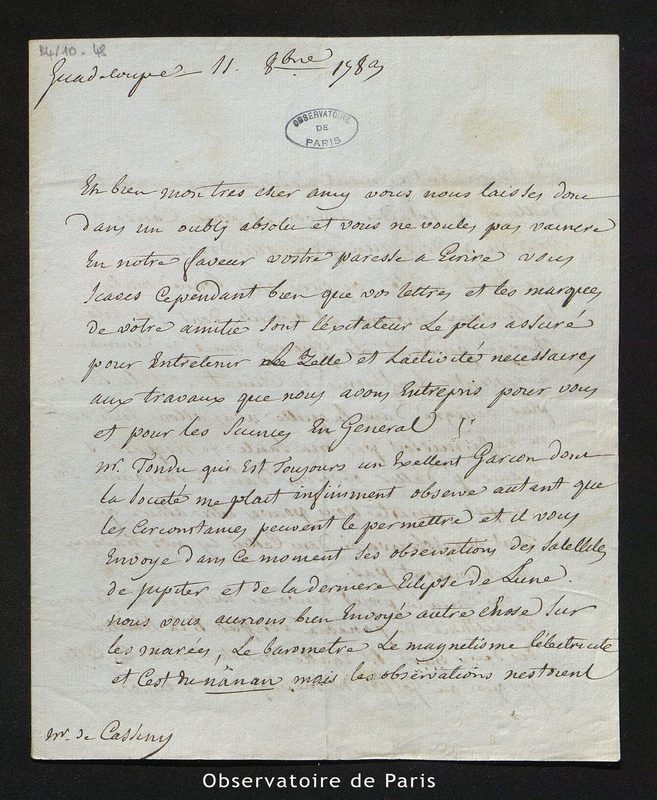 B4/10 - 48
Guadeloupe 11. 8bre 1783
OBSERVATOIRE
DE
PARIS
Eh bien mon tres cher amy vous nous laisses donc
dans un oubly absolu et vous ne voules pas vaincre
En notre faveur vostre paresse a Ecrire vous
scaves Cependant bien que vos lettres et les marques
de vôtre amitie sont l'exitateur le plus assuré
pour Entretenir le Zelle et L'activité necessaires
aux travaux que nous avons Entrepris pour vous
et pour les Siences En General !
mr. Tondu qui Est Toujours un Exellent Garcon dont
la Societé me plait infiniment observe autant que
les Circonstances peuvent le permettre et il vous
Envoye dans Ce moment ses observations des Satellites
de Jupiter et de la derniere Eclipse de Lune.
nous vous aurions bien Envoyé autre chose sur
les marées, Le barometre Le magnetisme l'électricité
et C'est du nânan mais les observations nestoient
mr. de Cassiny
Observatoire de Paris